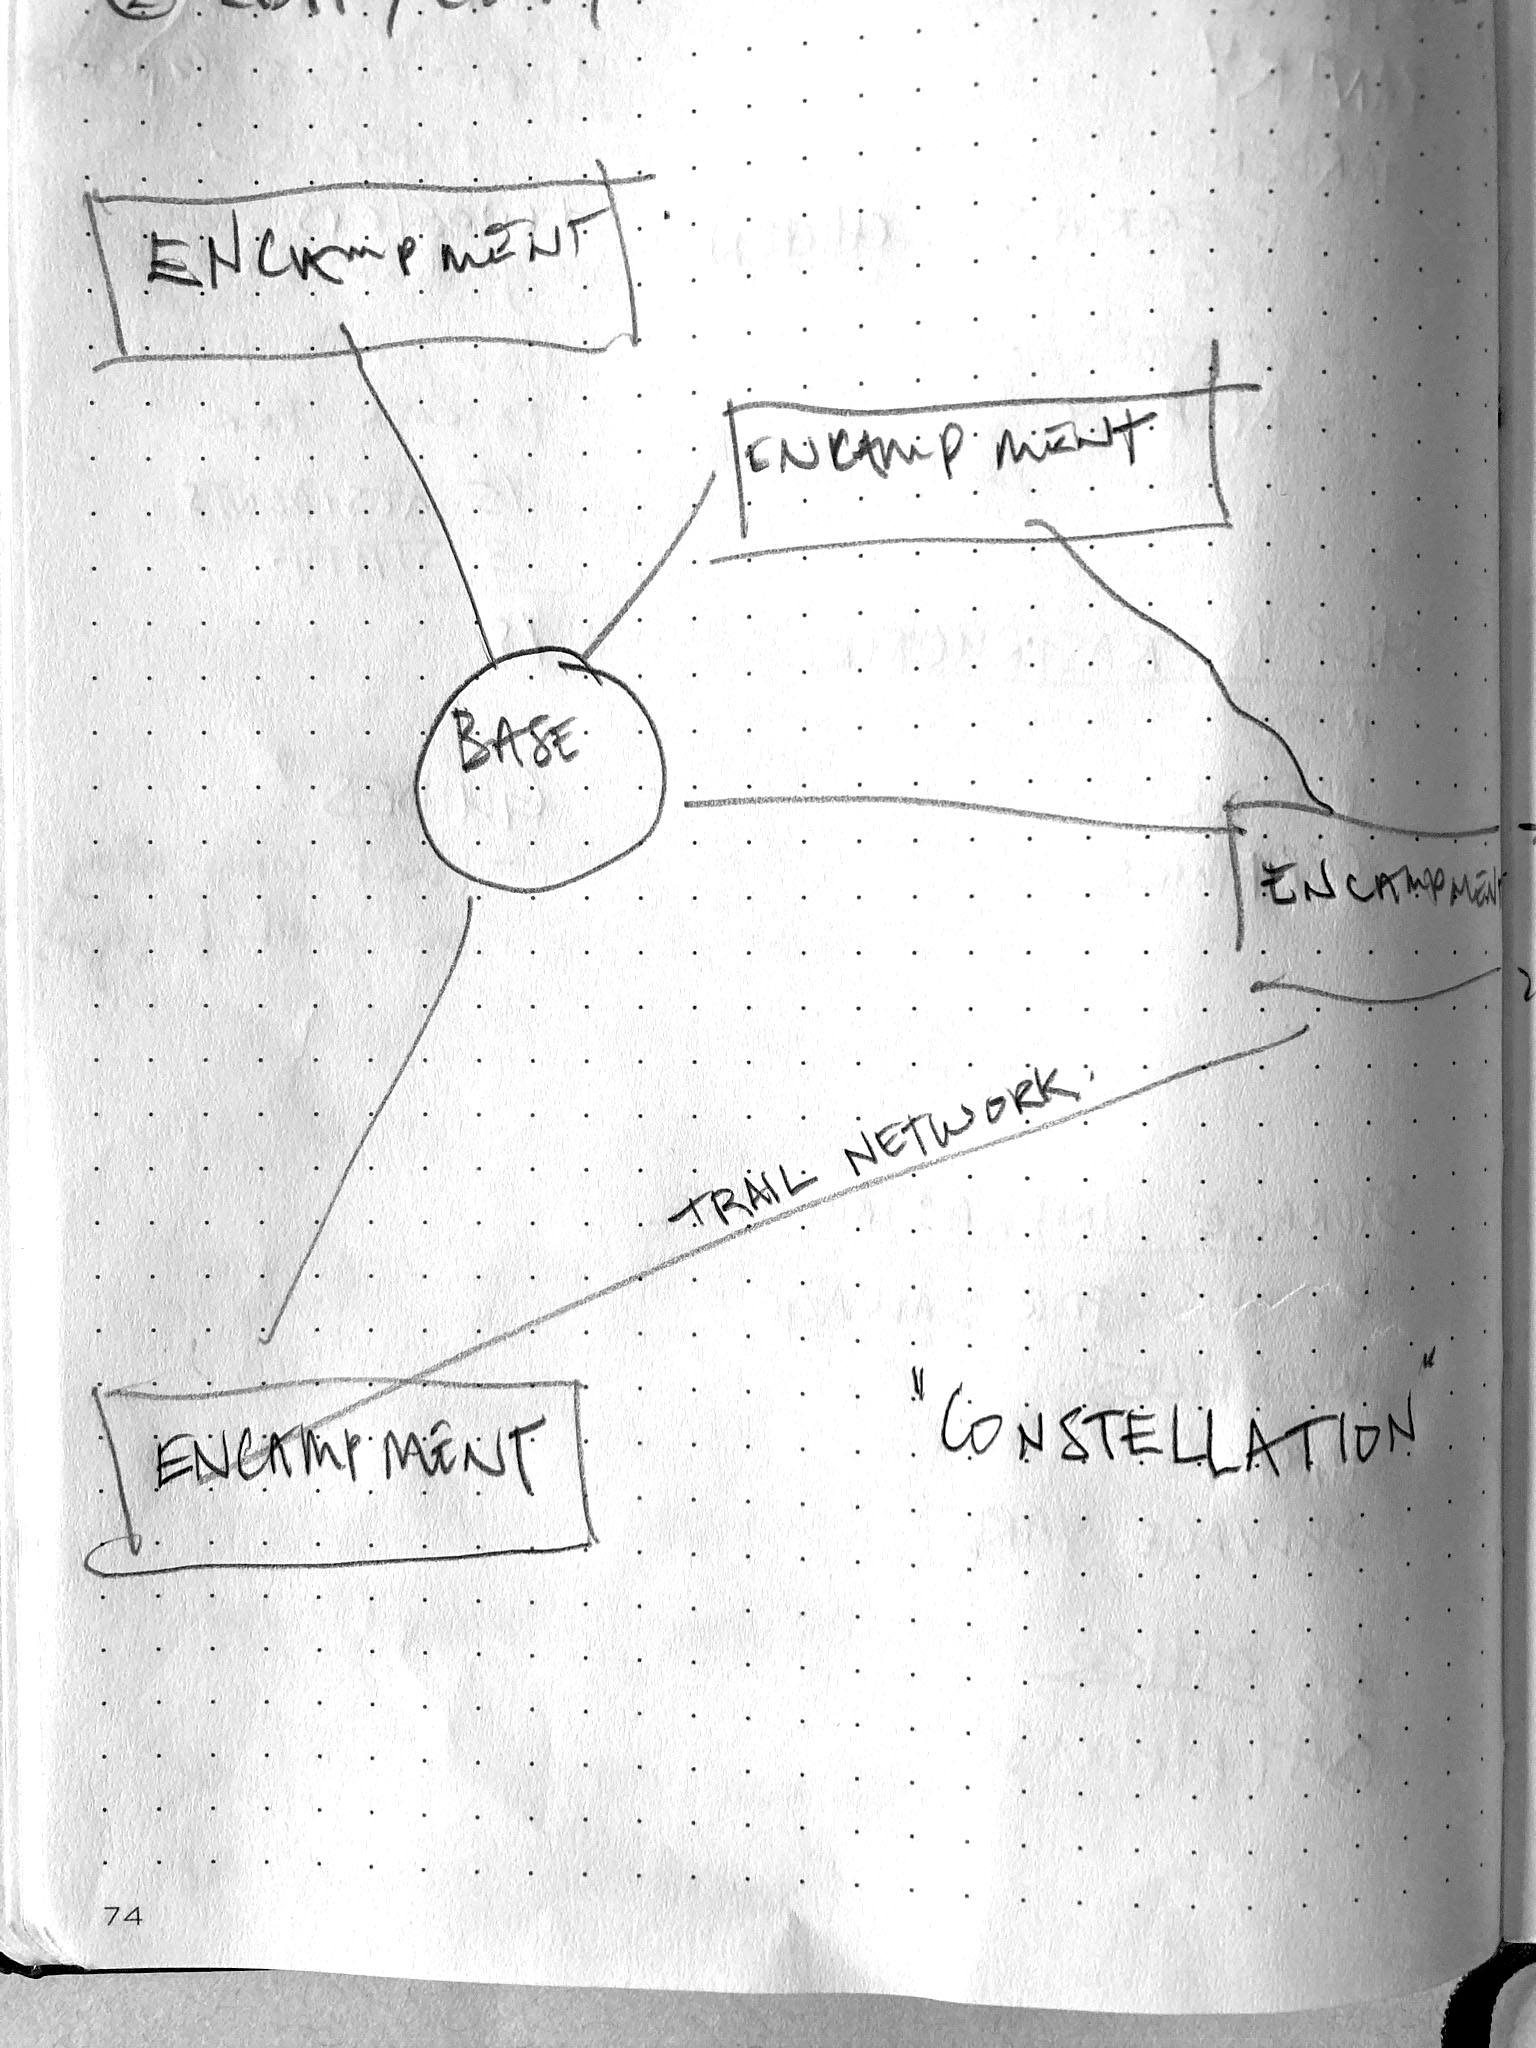 ENCAMPMENT
ENCAMPMENT
BASE
ENCAMPMENT
TRAIL NETWORK.
"CONSTELLATION"
ENCAMPMENT
74